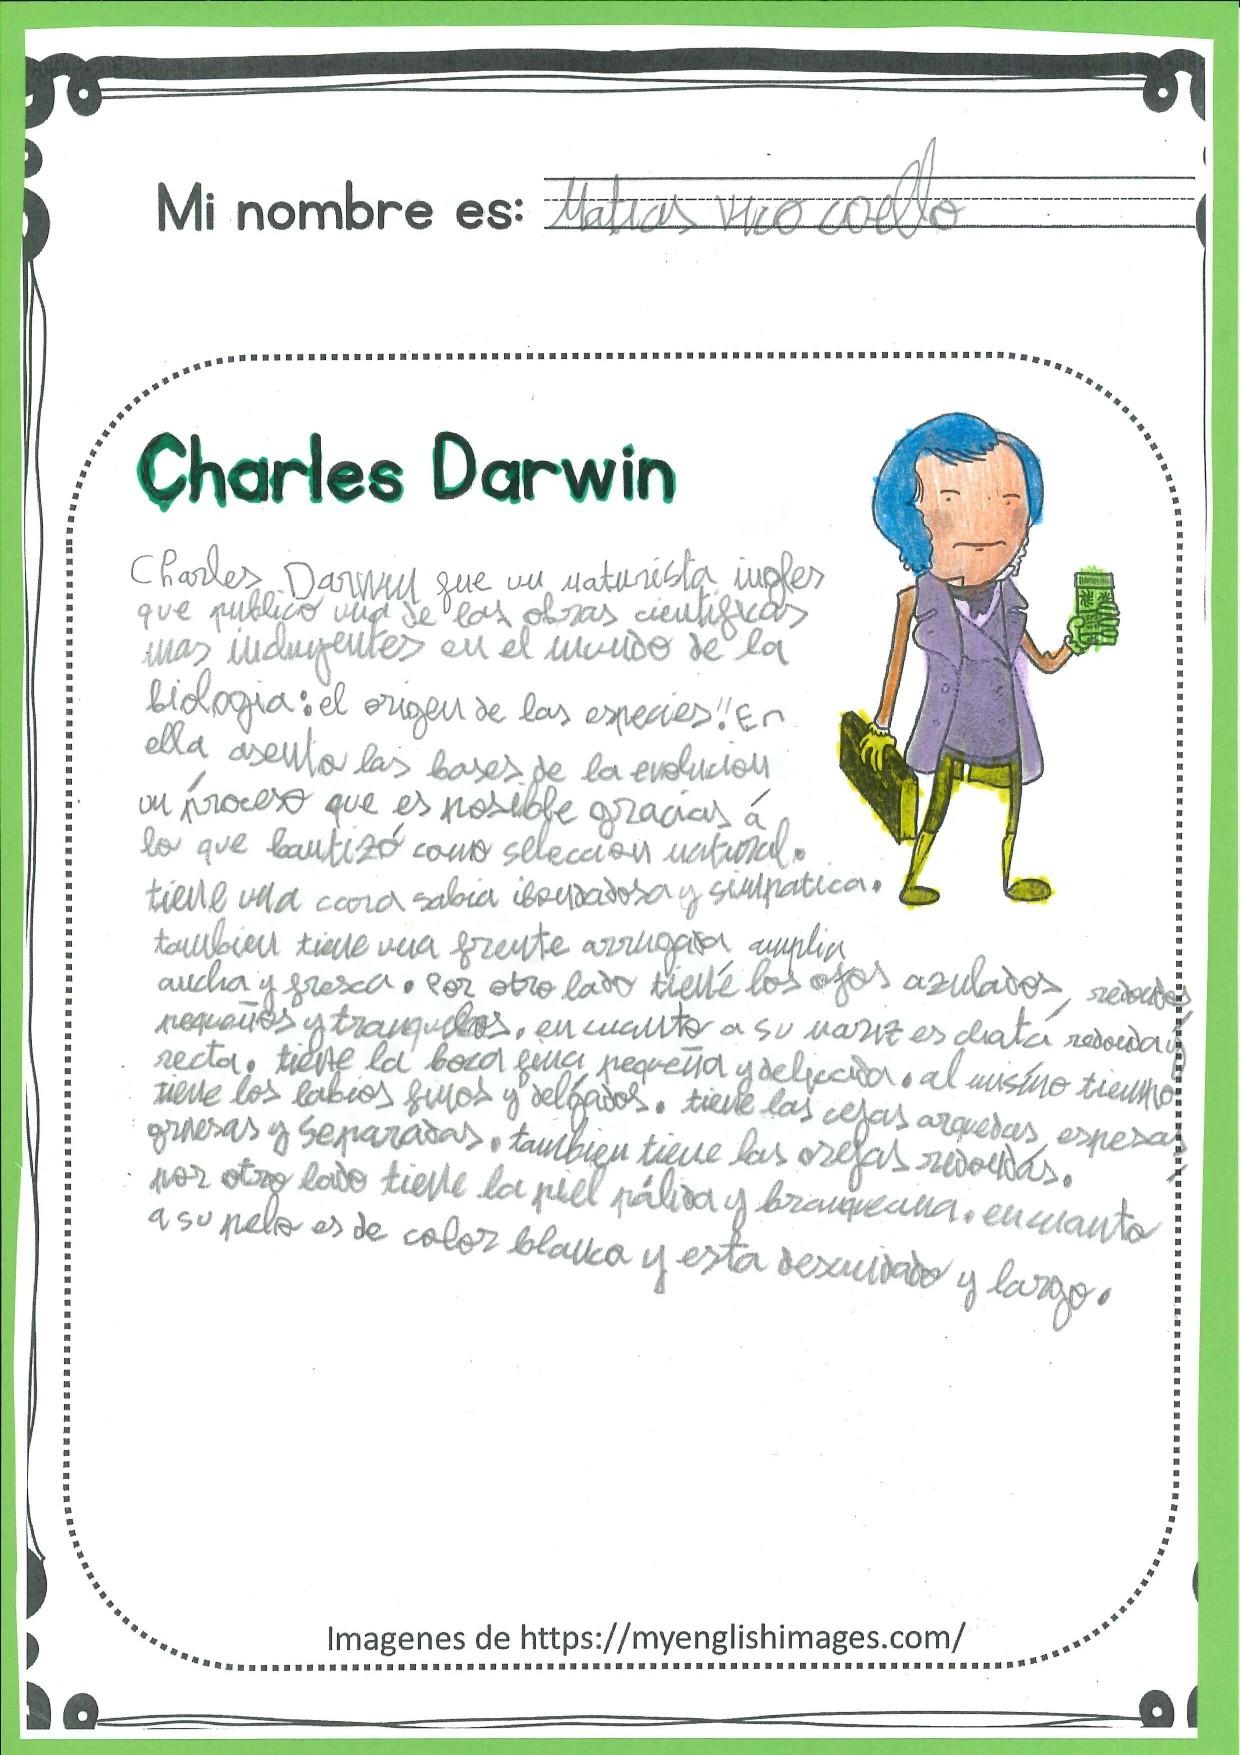 Mi nombre es: Matias Vico coello
Charles Darwin
Charles Darwin que un naturista ingles
que publico una de las obras cientificas
mas incluyentes en el mundo de la
biologia: el origen de las especies". En
ella asento las bases de la evolucion
un proceso que es posible gracias á
lo que bautizó como seleccion natural.
tiene una cara sabia y simpatica.
tambien tiene una frente arrugada, amplia
ancha y fresca. Por otro lado tiene los ojos azulados, redondos
pequeños y tranquilos. en cuanto a su nariz es chata, redonda y
recta. tiene la boca fina pequeña y delicada. al mismo tiempo
tiene los labios finos y delgados. tiene las cejas arquedas, espesas
gruesas y separadas. tambien tiene las orejas redondas.
por otro lado tiene la piel pálida y branqueana. en cuanto
a su pelo es de color blanca y esta descuidado y largo.
Imagenes de https://myenglishimages.com/